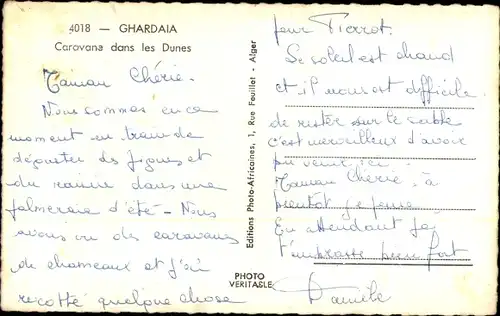 4018 — GHARDAIA
Caravane dans les Dunes
Maman Chérie.
Nous sommes en ce
moment en train de
déguster des figues et
du raisin dans une
palmeraie d'été - Nous
avons vu des caravanes
de chameaux et j'ai
récolté quelque chose
Editions Photo-Africaines, 1, Rue Feuillet - Alger
PHOTO
VERITABLE
pour Pierrot.
Le soleil est chaud
et il nous est difficile
de rester sur le sable
c'est merveilleux d'avoir
pu venir ici.
Maman Chérie, à
bientôt je pense
En attendant je
t'embrasse bien fort
Danièle